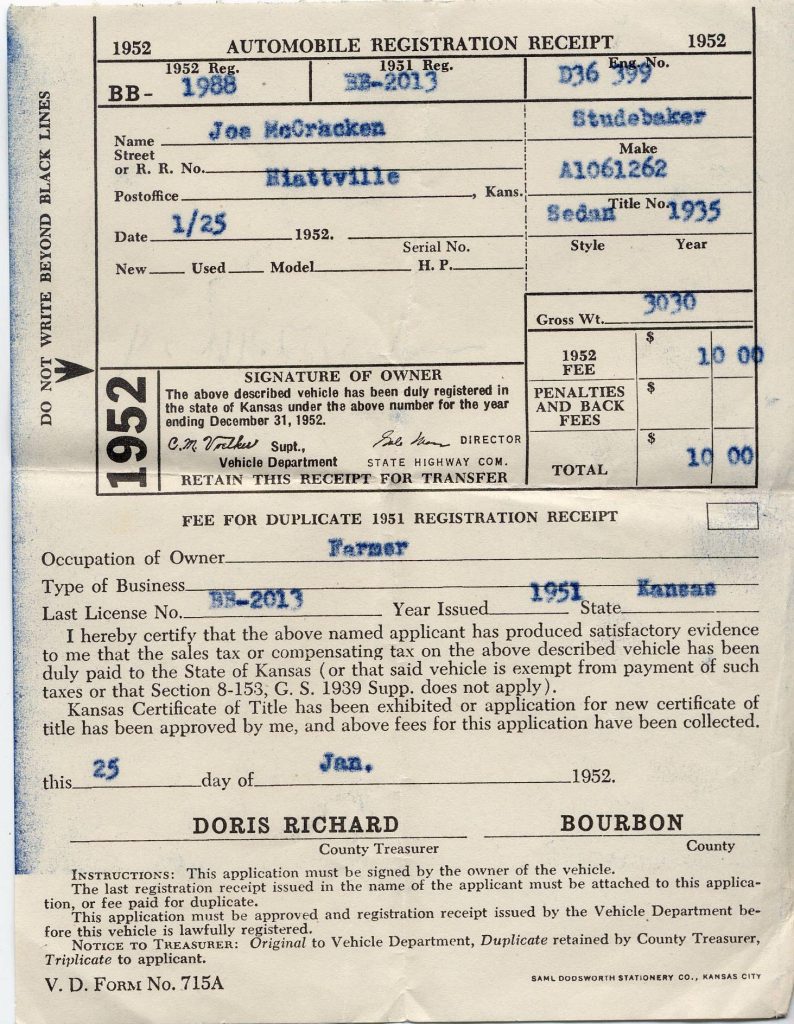 1952 AUTOMOBILE REGISTRATION RECEIPT 1952
1952 Reg. 1951 Reg. Eng. No.
BB- 1988 BB-2013 D36 399
Name Joe McCracken
Studebaker
Make
Street
or R. R. No.
A1061262
Title No.
Postoffice Hiattville, Kans.
Sedan 1935
Style Year
Date 1/25 1952.
Serial No.
New Used Model H. P.
Gross Wt. 3030
1952 FEE $ 10 00
PENALTIES AND BACK FEES $
TOTAL $ 10 00
DO NOT WRITE BEYOND BLACK LINES
1952
SIGNATURE OF OWNER
The above described vehicle has been duly registered in
the state of Kansas under the above number for the year
ending December 31, 1952.
C.M. Voelker Supt., DIRECTOR
Vehicle Department STATE HIGHWAY COM.
RETAIN THIS RECEIPT FOR TRANSFER
FEE FOR DUPLICATE 1951 REGISTRATION RECEIPT
Occupation of Owner Farmer
Type of Business
Last License No. BB-2013 Year Issued 1951 State Kansas
I hereby certify that the above named applicant has produced satisfactory evidence
to me that the sales tax or compensating tax on the above described vehicle has been
duly paid to the State of Kansas (or that said vehicle is exempt from payment of such
taxes or that Section 8-153, G. S. 1939 Supp. does not apply).
Kansas Certificate of Title has been exhibited or application for new certificate of
title has been approved by me, and above fees for this application have been collected.
this 25 day of Jan. 1952.
DORIS RICHARD BOURBON
County Treasurer County
INSTRUCTIONS: This application must be signed by the owner of the vehicle.
The last registration receipt issued in the name of the applicant must be attached to this applica-
tion, or fee paid for duplicate.
This application must be approved and registration receipt issued by the Vehicle Department be-
fore this vehicle is lawfully registered.
NOTICE TO TREASURER: Original to Vehicle Department, Duplicate retained by County Treasurer,
Triplicate to applicant.
V. D. FORM No. 715A SAML DODSWORTH STATIONERY CO., KANSAS CITY